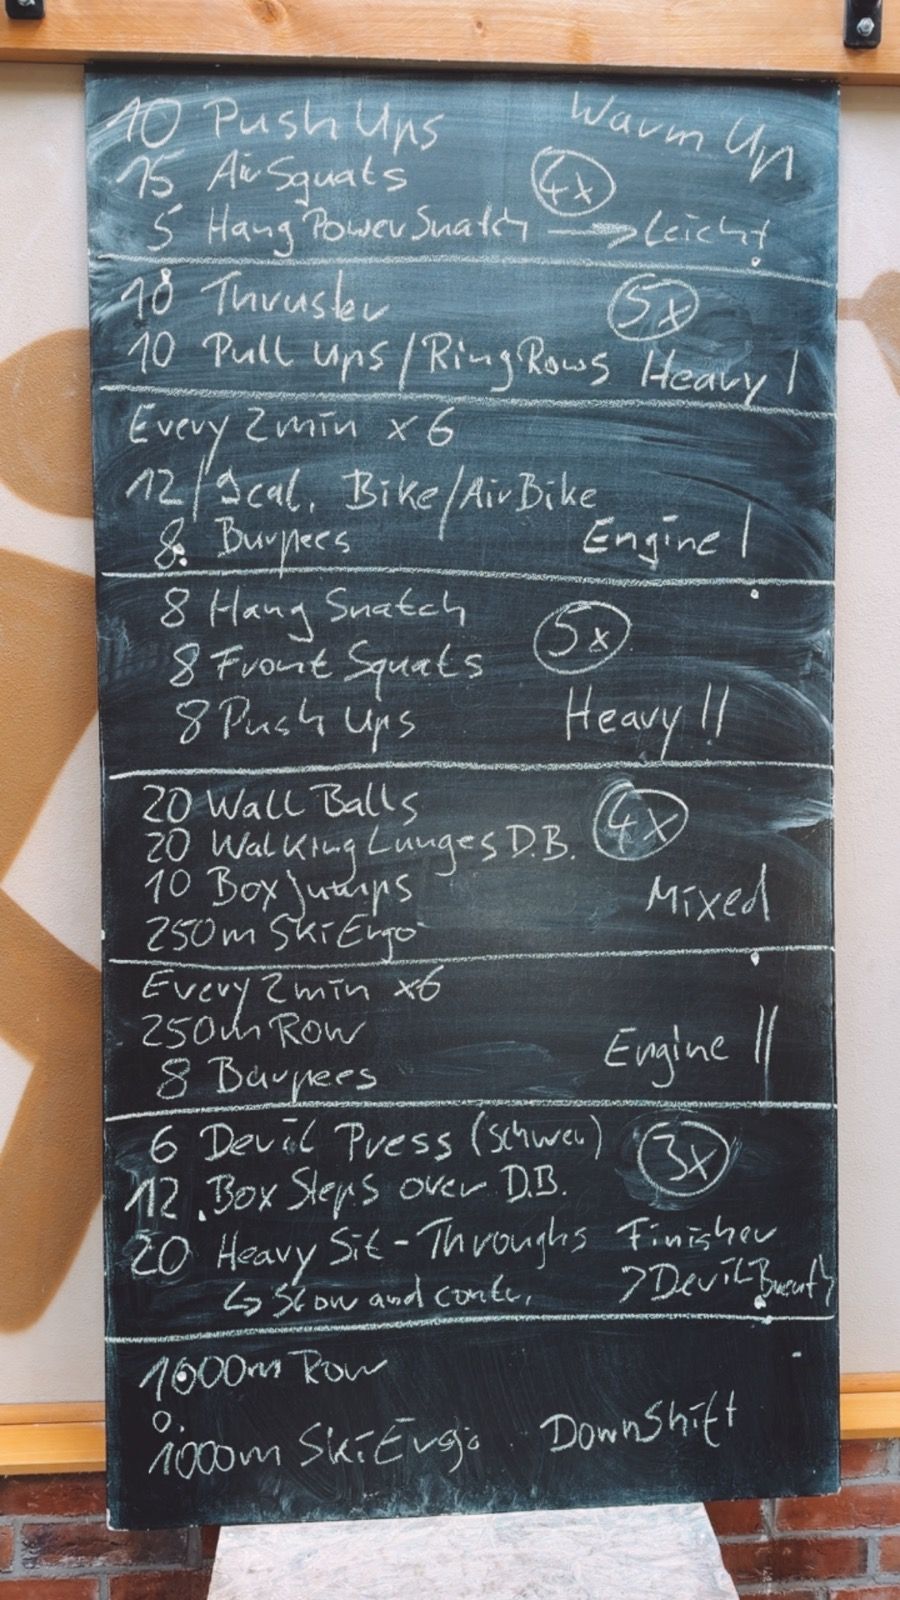 10 Push Ups Warm Up
15 Air Squats 4x
5 Hang Power Snatch → Leicht
10 Thruster 5x
10 Pull Ups / Ring Rows Heavy I
Every 2min x 6
12/9 cal. Bike/AirBike
8 Burpees Engine I
8 Hang Snatch 5x
8 Front Squats
8 Push Ups Heavy II
20 Wall Balls 4x
20 Walking Lunges D.B.
10 Box Jumps Mixed
250m SkiErgo
Every 2min x6
250m Row Engine II
8 Burpees
6 Devil Press (schwer) 3x
12 Box Steps over D.B.
20 Heavy Sit-Throughs Finisher
↳ Slow and contr. >Devil
1000m Row
o.
1000m SkiErgo DownShift